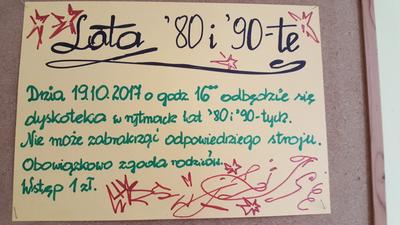 Lata '80 i '90-te
Dnia 19.10.2017 o godz 16⁰⁰ odbędzie się
dyskoteka w rytmach lat '80 i '90-tych.
Nie może zabraknąć odpowiedniego stroju.
Obowiązkowo zgoda rodziców.
Wstęp 1 zł.